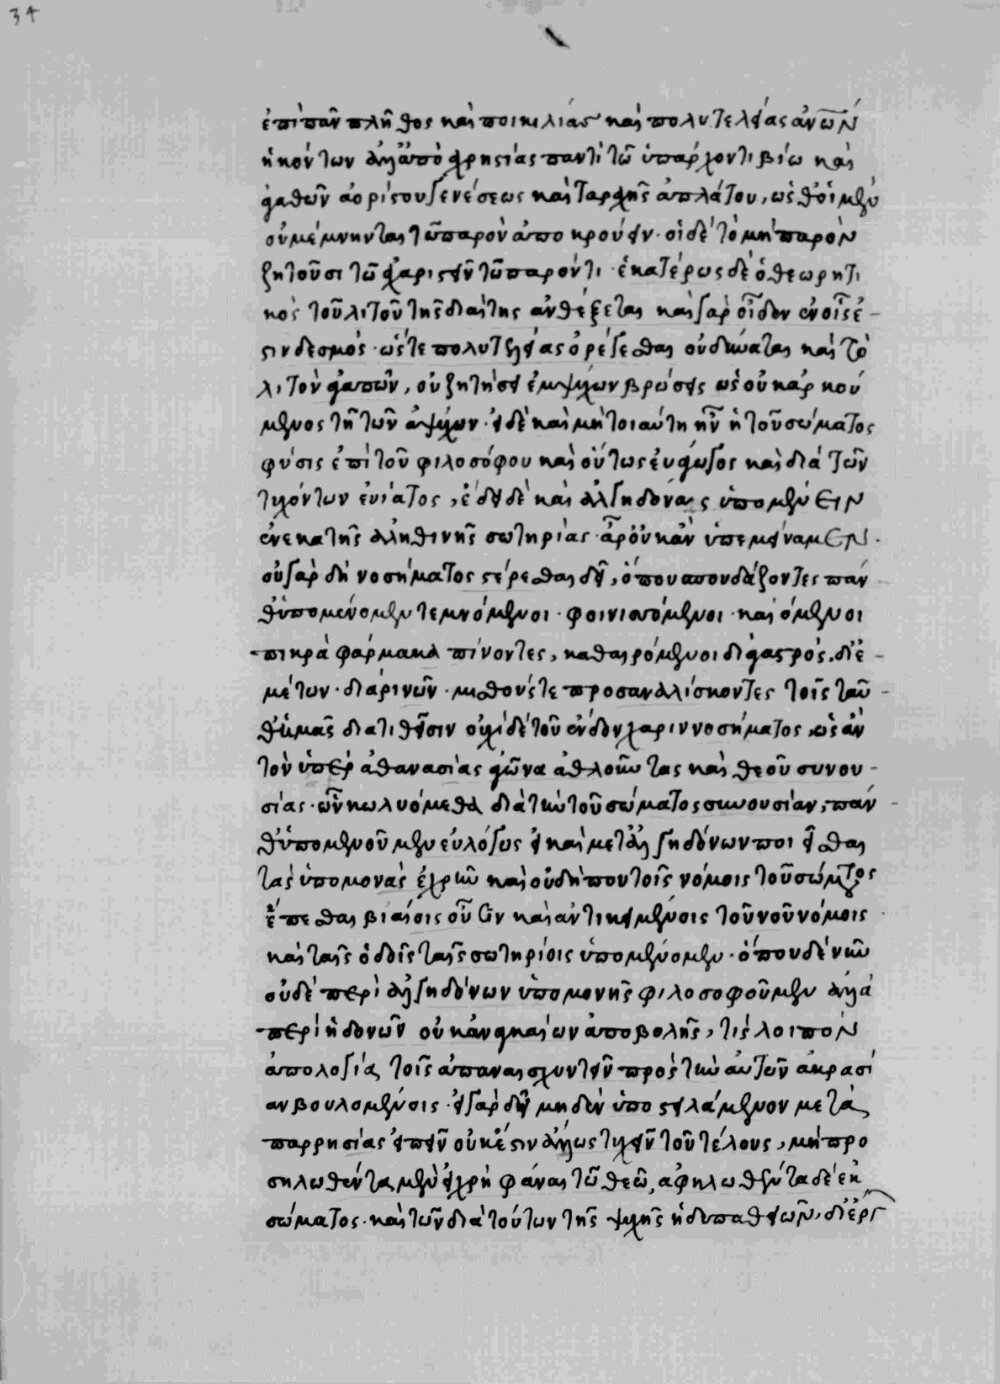 34
ἐπὶ πᾶν πλῆθος καὶ ποικιλίας καὶ πολυτελείας ἀνῶν
ἡκόντων ἀλλὰ ἀπὸ χρησίας παντὶ τῶ ὑπάρχοντι βίω καὶ
ἀγαθῶν ἀορίστου γενέσεως καὶ ταραχῆς ἀπλάτου, ὡς θ' οἱ μὲν
οὐ μέμνηνται τῶ παρὸν ἀποκρούειν· οἱ δὲ τὸ μὴ παρὸν
ζητοῦσι τῶ χαριεῖν τῶ παρόντι· ἑκατέρως δὲ ὁ θεωρητι
κὸς τοῦ λιτοῦ τῆς διαίτης ἀνθέξεται καὶ γὰρ οἶδεν ἐν οἷς ἐ-
στιν δεσμός· ὥστε πολυτελείας ὀρέγεσθαι οὐ δύναται καὶ τὸ
λιτὸν ἀγαπῶν, οὐ ζητήσει ἐμψύχων βρώσεις ὡς οὐκ ἀρκού
μενος τῆ τῶν ἀψύχων· εἰ δὲ καὶ μὴ τοιαύτη ἦν ἡ τοῦ σώματος
φύσις ἐπὶ τοῦ φιλοσόφου καὶ οὕτως εὐάγωγος καὶ διὰ τῶν
τυχόντων εὐίατος, ἔδει δὲ καὶ ἀλγηδόνας ὑπομένειν
ἕνεκα τῆς ἀληθινῆς σωτηρίας ἆρ' οὐκ ἂν ὑπεμείναμεν·
οὐ γὰρ δὴ νοσήματος στέρεσθαι δεῖ, ὅπου σπουδάζοντες πάν
θ' ὑπομένομεν τεμνόμενοι· φοινισσόμενοι· καιόμενοι
πικρὰ φάρμακα πίνοντες, καθαιρόμενοι διὰ γαστρός, δι' ἐ-
μέτων· διὰ ῥινῶν· μισθούς τε προσαναλίσκοντες τοῖς ταῦ-
θ' ἡμᾶς διατιθεῖσιν οὐχὶ δὲ τοῦ ἔνδον χάριν νοσήματος, ὡς ἂν
τὸν ὑπὲρ ἀθανασίας ἀγῶνα ἀθλοῦντας καὶ θεοῦ συνου-
σίας· ὧν κωλυόμεθα διὰ τὴν τοῦ σώματος συνουσίαν, πάν-
θ' ὑπομενοῦμεν εὐλόγως εἰ καὶ μετὰ ἀλγηδόνων ποιεῖσθαι
τὰς ὑπομονὰς ἐχρῆν καὶ οὐ δήπου τοῖς νόμοις τοῦ σώματος
ἕπεσθαι βιαίοις οὖσιν καὶ ἀντικειμένοις τοῦ νοῦ νόμοις
καὶ ταῖς ὁδοῖς ταῖς σωτηρίοις ὑπομένομεν· ὅπου δὲ νῦν
οὐδὲ περὶ ἀλγηδόνων ὑπομονῆς φιλοσοφοῦμεν ἀλλὰ
περὶ ἡδονῶν οὐκ ἀναγκαίων ἀποβολῆς, τίς λοιπὸν
ἀπολογία τοῖς ἀπαναισχυντεῖν πρὸς τὴν αὐτῶν ἀκρασί
αν βουλομένοις· εἰ γὰρ δεῖ μηδὲν ὑποστειλάμενον μετὰ
παρρησίας εἰπεῖν οὐκ ἔστιν ἄλλως τυχεῖν τοῦ τέλους, μὴ προ
σηλωθέντα μὲν εἰ χρὴ φάναι τῶ θεῶ, ἀφηλωθέντα δὲ ἐκ
σώματος· καὶ τῶν διὰ τούτων τῆς ψυχῆς ἡδυπαθειῶν, δι' ἔργ